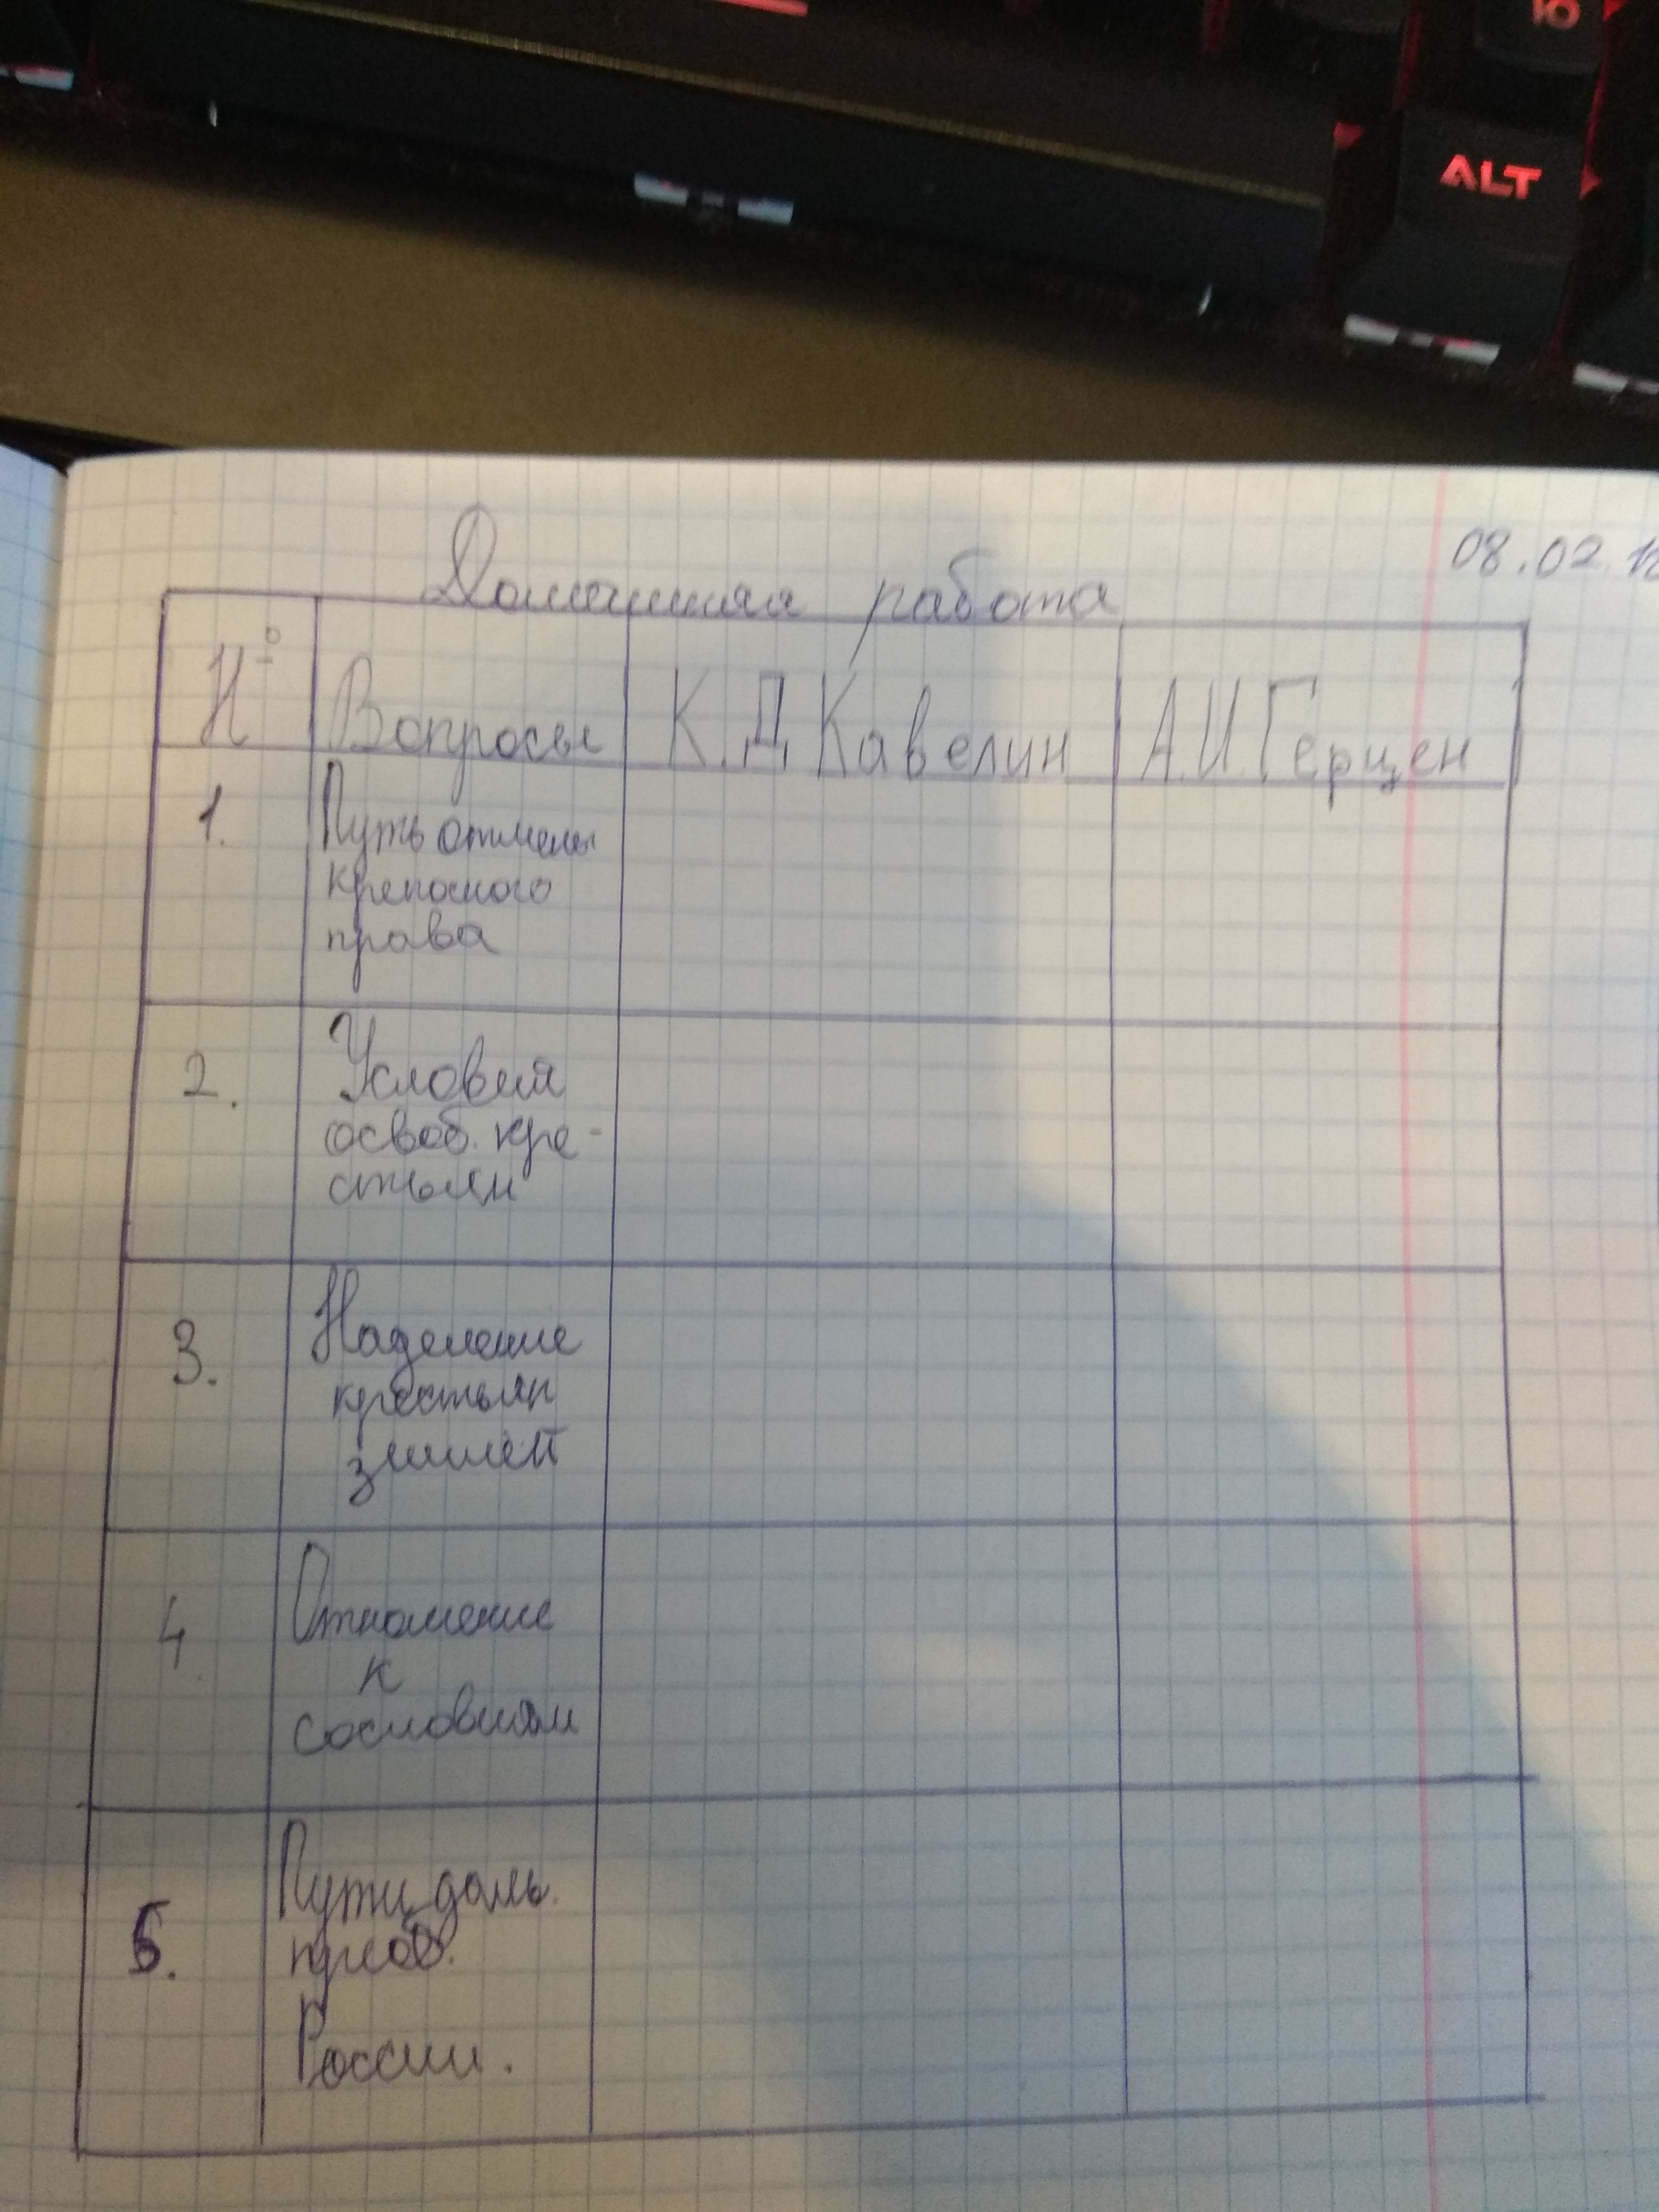 Ю
ALT
08.02.
Домашняя работа
№ Вопросы К.Д Кавелин А.И.Герцен
1. Путь отмены
крепосного
права
2. Условия
освоб. кре-
стьян
3. Наделение
крестьян
землей
4. Отношение
к
сословиям
5. Пути даль.
преоб.
России.